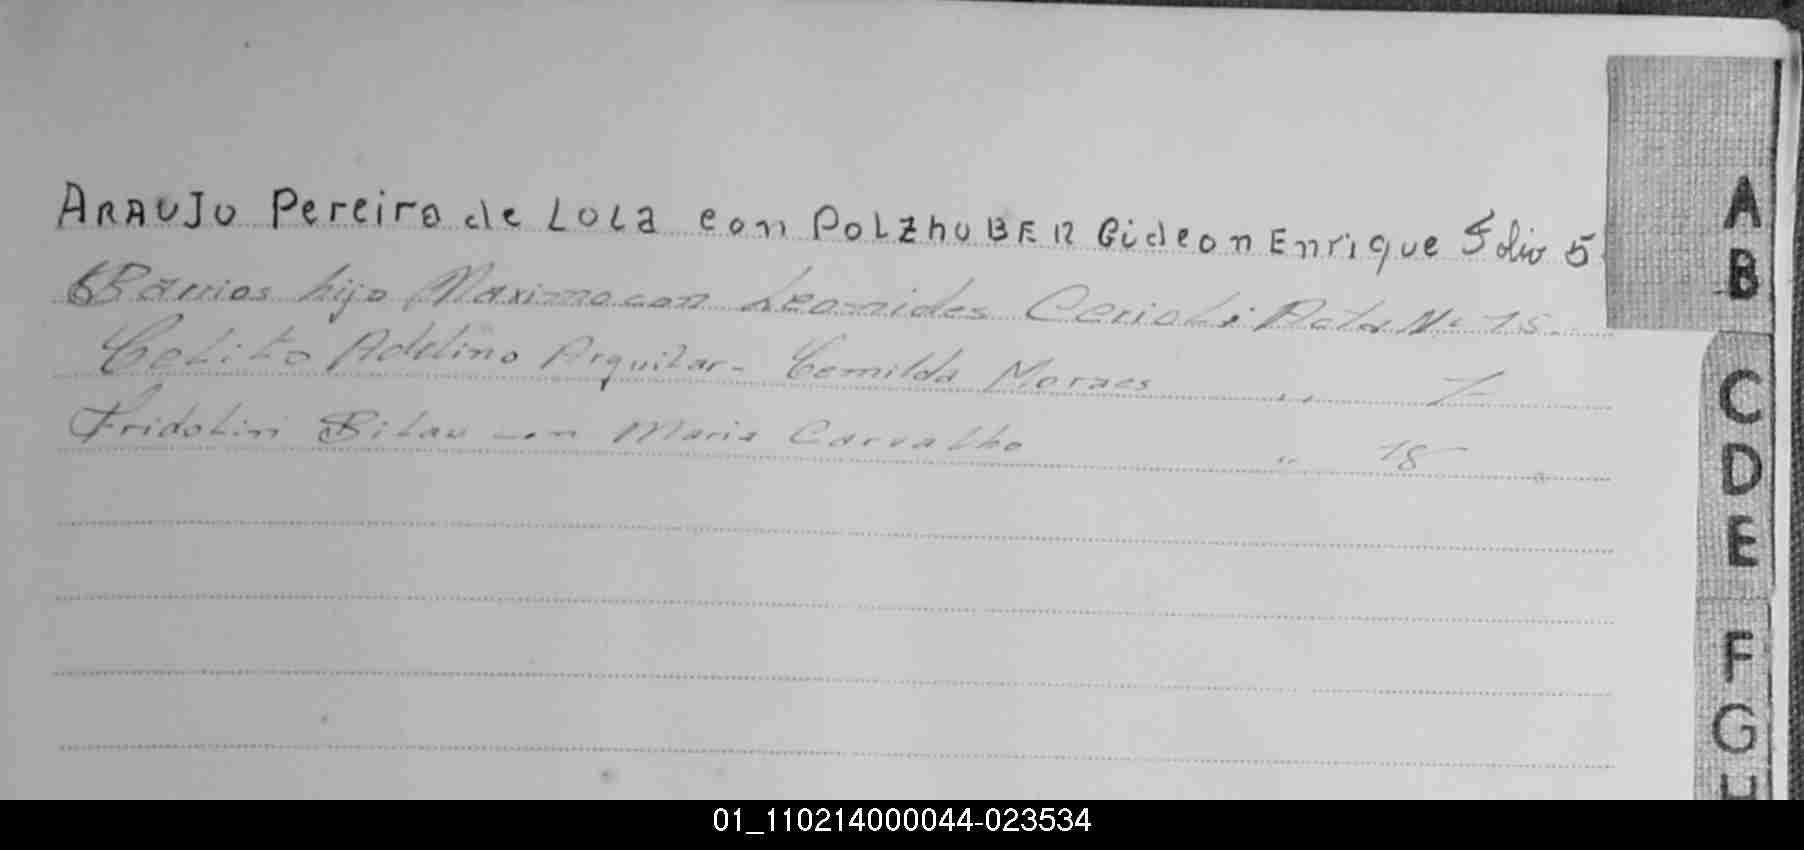 ARAUJO Pereiro de LOLA con POLZhUBER Gideon Enrique Folio 5
Barrios hijo Maximo con Leonides Cerioli Acta Nº 15.
Celito Adelino Arguilar - Cemilda Moraes " 7
Fridolin Bilau con Maria Carvalho " 18
A
B
C
D
E
F
G
H
01_110214000044-023534